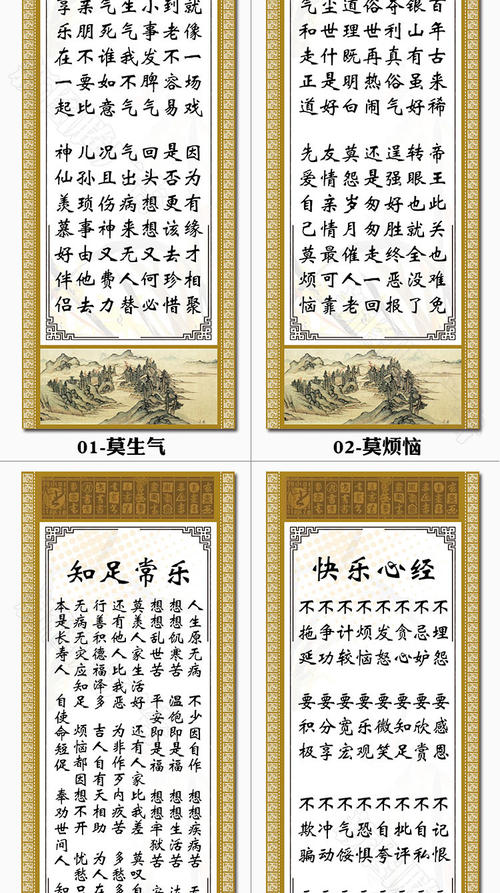 就像一场戏 因为有缘才相聚
到老不容易 是否更该去珍惜
小事发脾气 回头想想又何必
生气我不气 气出病来无人替
气死谁如意 况且伤神又费力
亲朋不要比 儿孙琐事由他去
享乐在一起 神仙羡慕好伴侣
01-莫生气
百年古来稀 帝王此关也难免
银山有虽好 转眼也就全没了
夺利真俗气 逞强好胜终恶报
俗世再热闹 还是匆匆走一回
道理既明白 莫怨岁月催人老
尘世什是好 友情亲情最可靠
气和走正道 先爱自己莫烦恼
02-莫烦恼
知足常乐
人生原无病 不少因自作 想想疾病苦
想想饥寒苦 温饱即是福 想想生活苦 达
想想乱世苦 平安即是福 想想牢狱苦 安
莫羡人家生活好 还有人家比我差 莫叹自
还有他人比我恶 为非作歹内疚苦 多愁
行善积德福泽多 吉人自有天相助 为人在
无病无灾应知足 烦恼都因想不开
本是长寿人 自使命短促 奉劝世间人 知
快乐心经
不埋怨 要感恩 不记恨
不忌妒 要欣赏 不自私
不贪心 要知足 不批评
不发怒 要微笑 不自夸
不烦恼 要乐观 不恐惧
不计较 要宽宏 不气馁
不争功 要分享 不冲动
不拖延 要积极 不欺骗